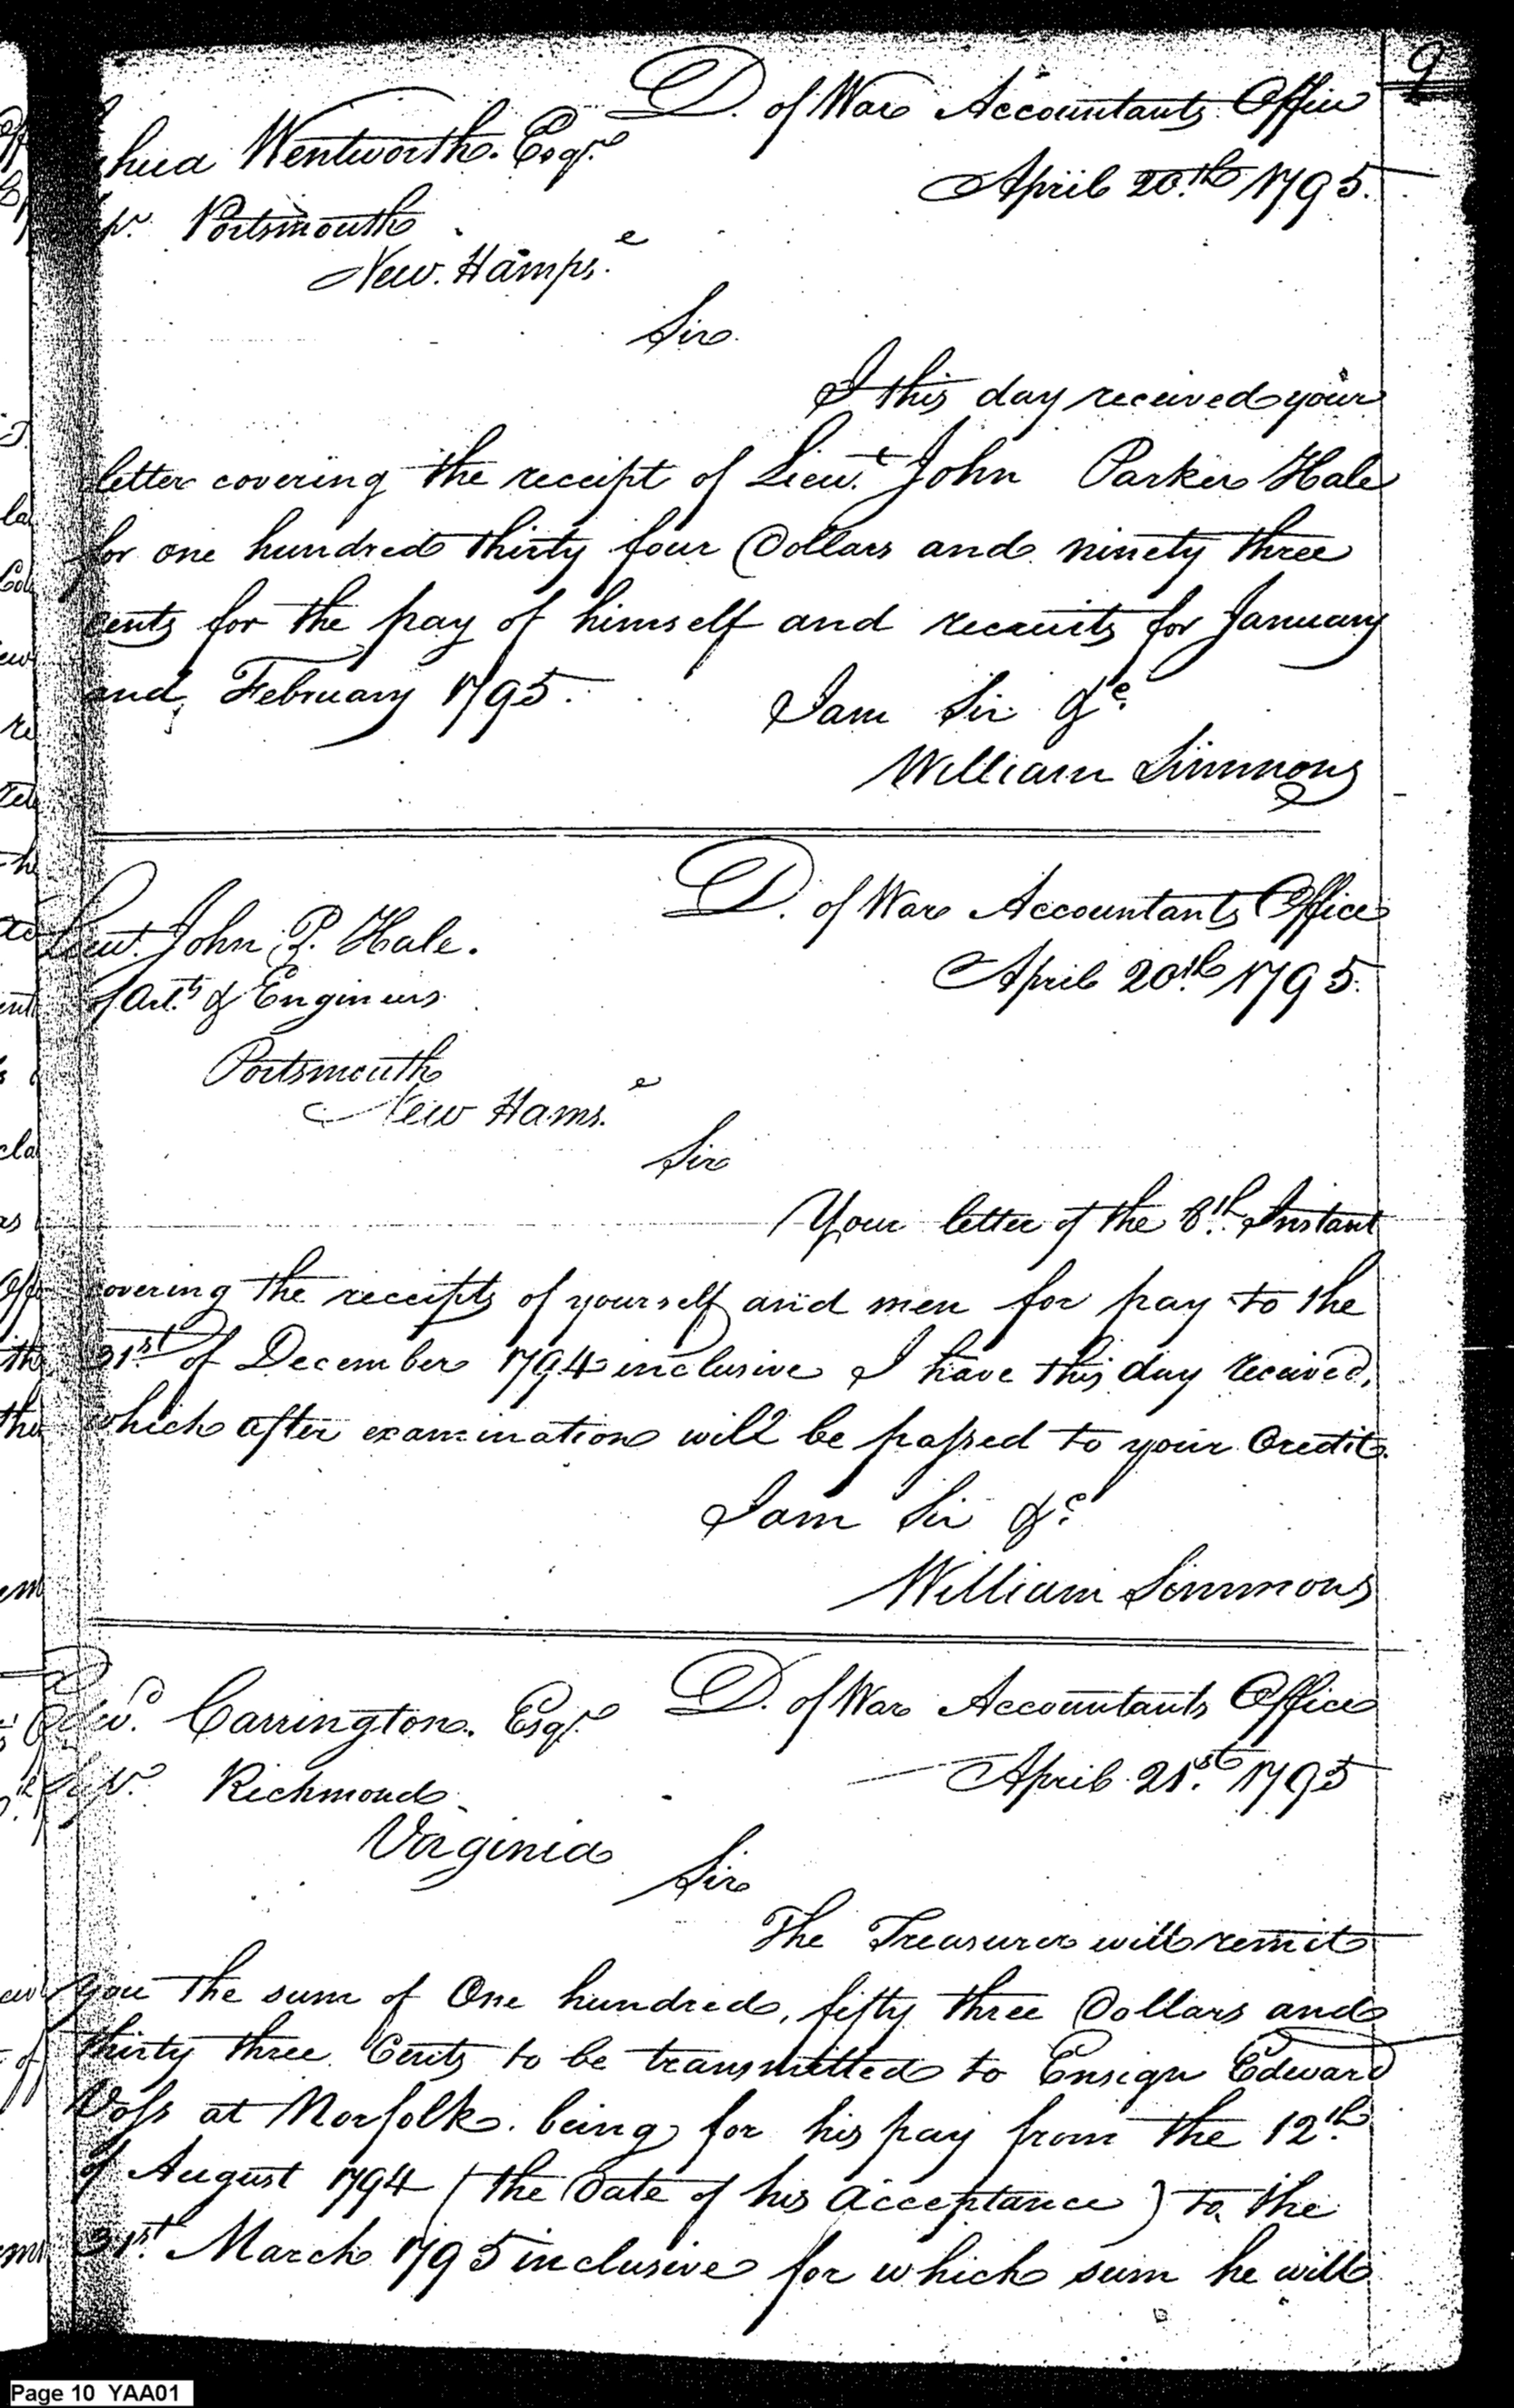 9
D. of War Accountants Office
hua Wentworth. Esqr.
April 20th 1795.
pr. Portsmouth
New. Hamps.e
Sir
I this day received your
letter covering the receipt of Lieut. John Parker Hale
for one hundred thirty four Dollars and ninety three
cents for the pay of himself and recruits for January
and, February 1795.
I am Sir &c.
William Simmons
D. of War Accountants Office
Lieut. John P. Hale.
April 20th 1795.
of Art.y & Engineers
Portsmouth
New Hams.e
Sir
Your letter of the 8th. Instant
covering the receipts of yourself and men for pay to the
31st. of December 1794 inclusive I have this day received,
which after examination will be passed to your Credit.
I am Sir &c.
William Simmons
D. of War Accountants Office
Edwd. Carrington. Esqr.
April 21st. 1795
Richmond
Virginia
Sir
The Treasurer will remit
you the sum of One hundred, fifty three Dollars and
thirty three Cents to be transmitted to Ensign Edward
Voss at Norfolk. being for his pay from the 12th.
of August 1794 (the Date of his Acceptance) to the
31st. March 1795 inclusive for which sum he will
Page 10 YAA01